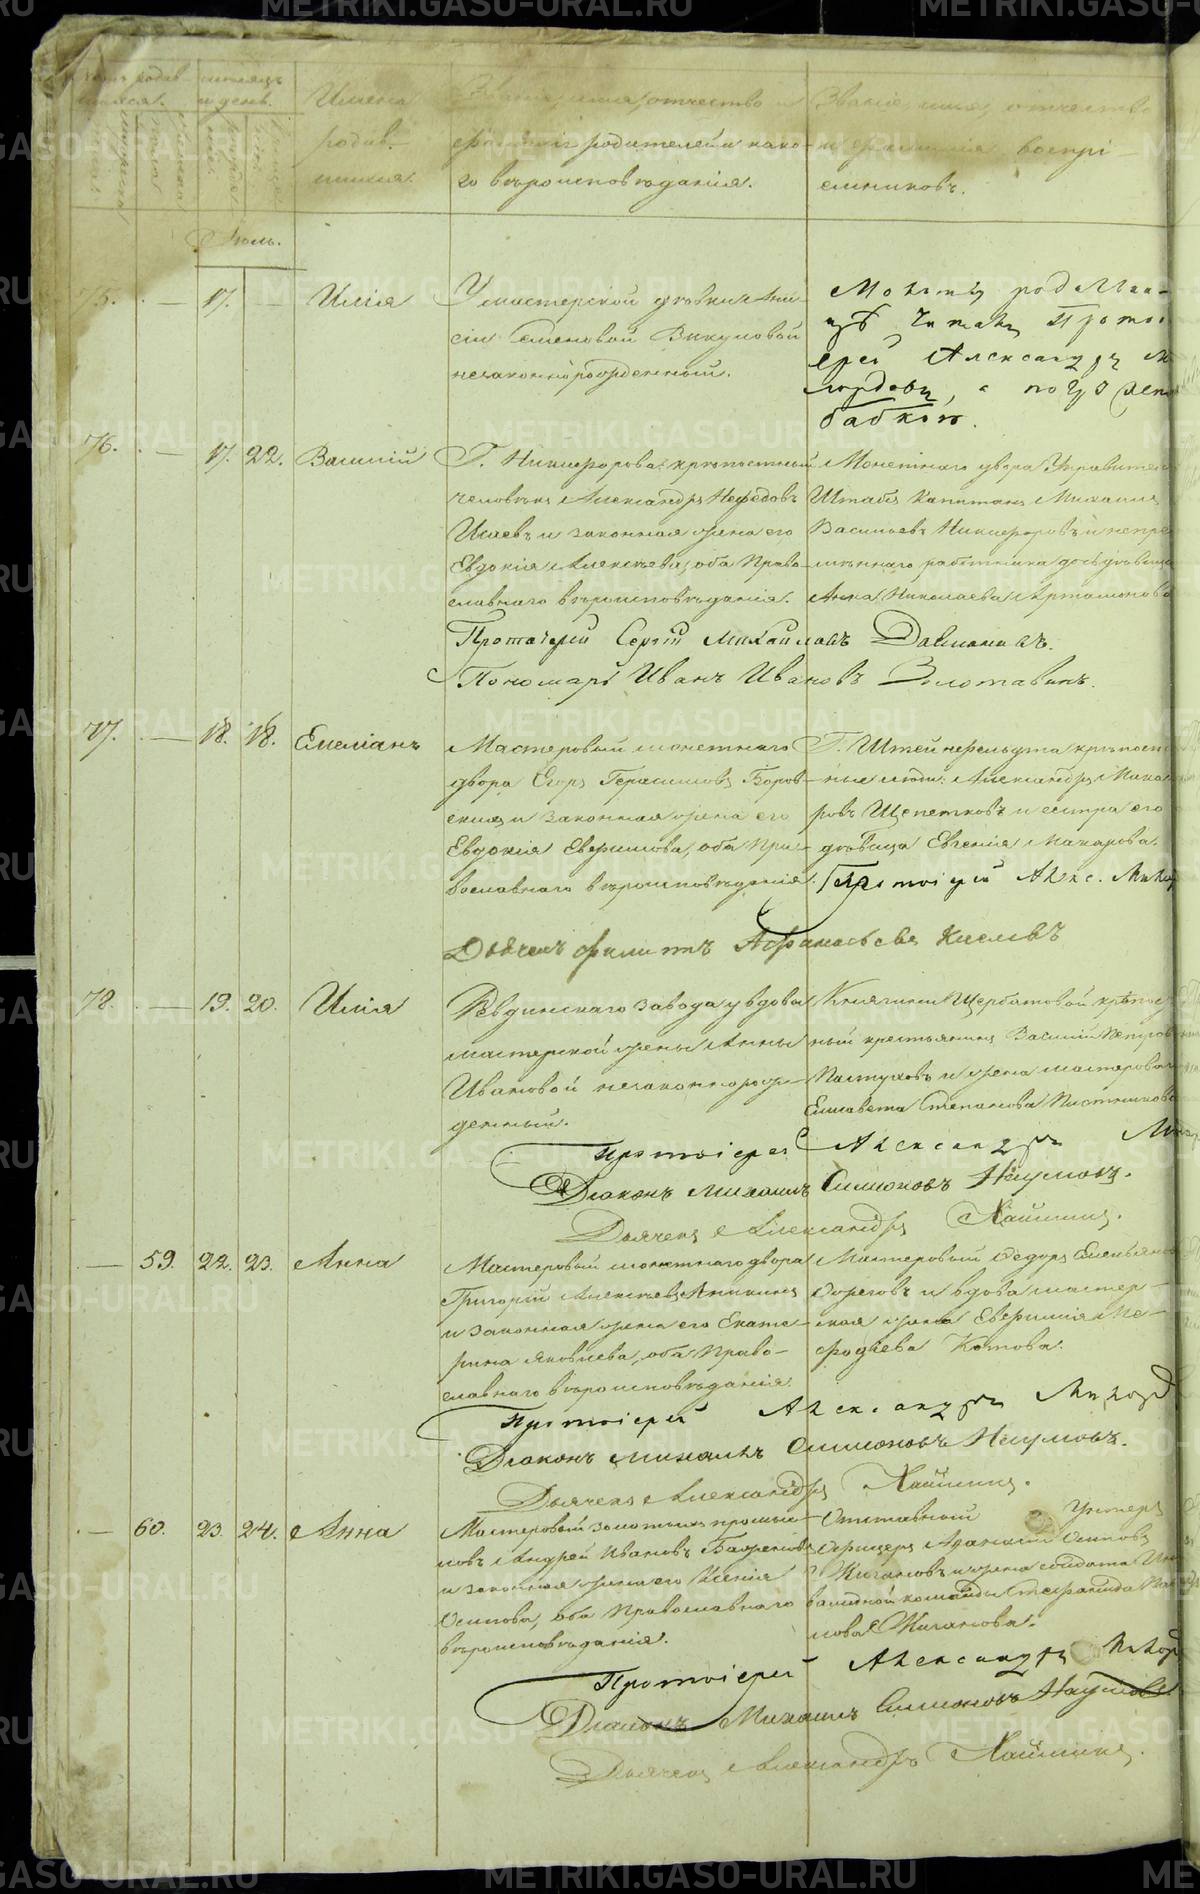 родив-
месяцъ
и день.
Имена
родив-
шихся.
Званіе, имя, отчество и
фамилія родителей и како-
го вѣроисповѣданія.
Званіе, имя, отчество
и фамилія воспрі-
емниковъ.
Іюль.
75. — 17. — Илія
У мастерской дѣвки Ани-
сіи Семеновой Викуловой
незаконнорожденный.
Молитву родильни-
цѣ читалъ Прото-
ерей Александръ
а погружен
бабкою.
76. — 17. 22. Василій
Г. Никифорова крѣпостный
человѣкъ Александръ Нефедовъ
Исаевъ и законная жена его
Евдокія Алексѣева, оба Право-
славнаго вѣроисповѣданія.
Монетнаго двора Управител
Штабсъ Капитанъ Михаилъ
Васильевъ Никифоровъ и непре
мѣннаго работника дочь дѣвица
Анна Николаева Артамонова
Протоіерей Сергій Михайловъ
Пономарь Иванъ Ивановъ Золотавинъ.
77. — 18. 18. Емеліанъ
Мастеровый монетнаго
двора Егоръ Герасимовъ Боров-
скихъ и законная жена его
Евдокія Ефимова, оба Пра-
вославнаго вѣроисповѣданія.
Г. Штейнфельдта крѣпост
ные люди: Александръ Мака
ровъ Щепетковъ и сестра его
дѣвица Евгенія Макарова.
Протоіерей Алекс.
Дьячекъ Филиппъ Афанасьевъ Киселевъ
78. — 19. 20. Илія
Ревдинскаго завода у вдовы
мастерской жены Анны
Ивановой незаконнорож-
денный.
Княгини Щербатовой крѣпост
ный крестьянинъ Василій Петров
Пастуховъ и жена мастероваго
Елисавета Степанова Постникова
Протоіерей Александръ
Діаконъ Михаилъ Симоновъ Наумовъ.
Дьячекъ Александръ Хлопинъ.
— 59. 22. 23. Анна
Мастеровый монетнаго двора
Григорій Алексѣевъ Аникинъ
и законная жена его Екате-
рина Яковлева, оба Право-
славнаго вѣроисповѣданія.
Мастеровый Ѳедоръ Емельянов
и вдова мастер-
ская жена Евфимія Ме-
фодіева Котова.
Протоіерей Александръ
Діаконъ Михаилъ Симоновъ Наумовъ.
Дьячекъ Александръ Хлопинъ.
— 60. 23. 24. Анна
Мастеровый золотыхъ промыс-
ловъ Андрей Ивановъ Баженовъ
и законная жена его Ксенія
Осипова, оба Православнаго
вѣроисповѣданія.
Отставный Унтеръ
Офицеръ Осиповъ
Жигановъ и жена солдата Ин
валидной команды Стефанида
лова Жиганова.
Протоіерей Александръ
Діаконъ Михаилъ Симоновъ Наумовъ
Дьячекъ Александръ Хлопинъ.
METRIKI.GASO-URAL.RU